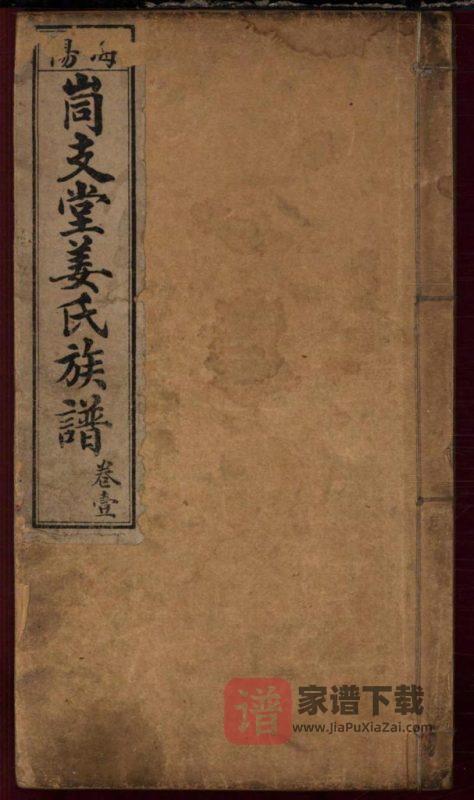 海陽
峝支堂姜氏族譜
卷壹
谱 家谱下载
www.JiaPuXiaZai.com